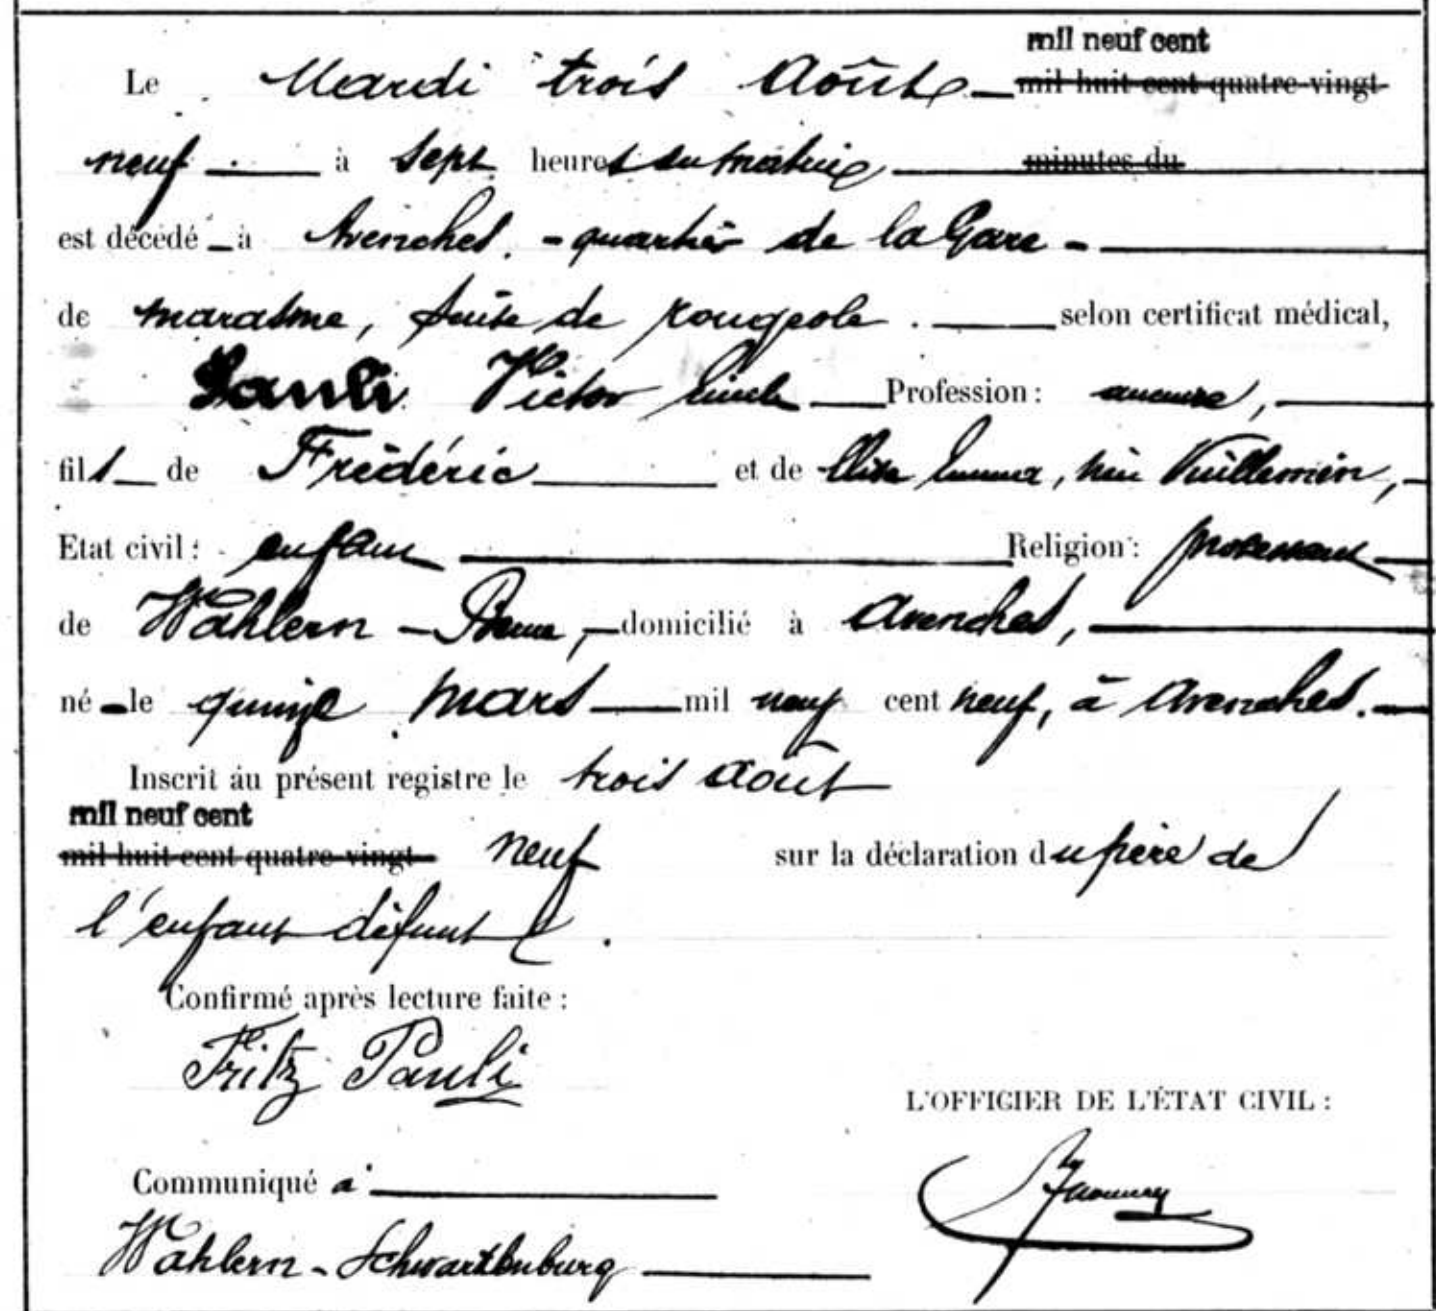 mil neuf cent
Le Mardi trois Août mil huit cent quatre-vingt
neuf à sept heures du matin minutes du
est décédé à Avenches. - quartier de la Gare -
de marasme, suite de rougeole. selon certificat médical,
Pauli Victor Emile Profession: aucune,
fils de Frédéric et de Elise Emma, née Vuillemin,
Etat civil: enfant Religion: protestant
de Wahlern - Berne, domicilié à Avenches,
né le quinze mars mil neuf cent neuf, à Avenches.
Inscrit au présent registre le trois août
mil neuf cent
mil huit cent quatre-vingt neuf sur la déclaration du père de
l'enfant défunt.
Confirmé après lecture faite:
Fritz Pauli
L'OFFICIER DE L'ÉTAT CIVIL:
Communiqué à
Wahlern - Schwartzenburg